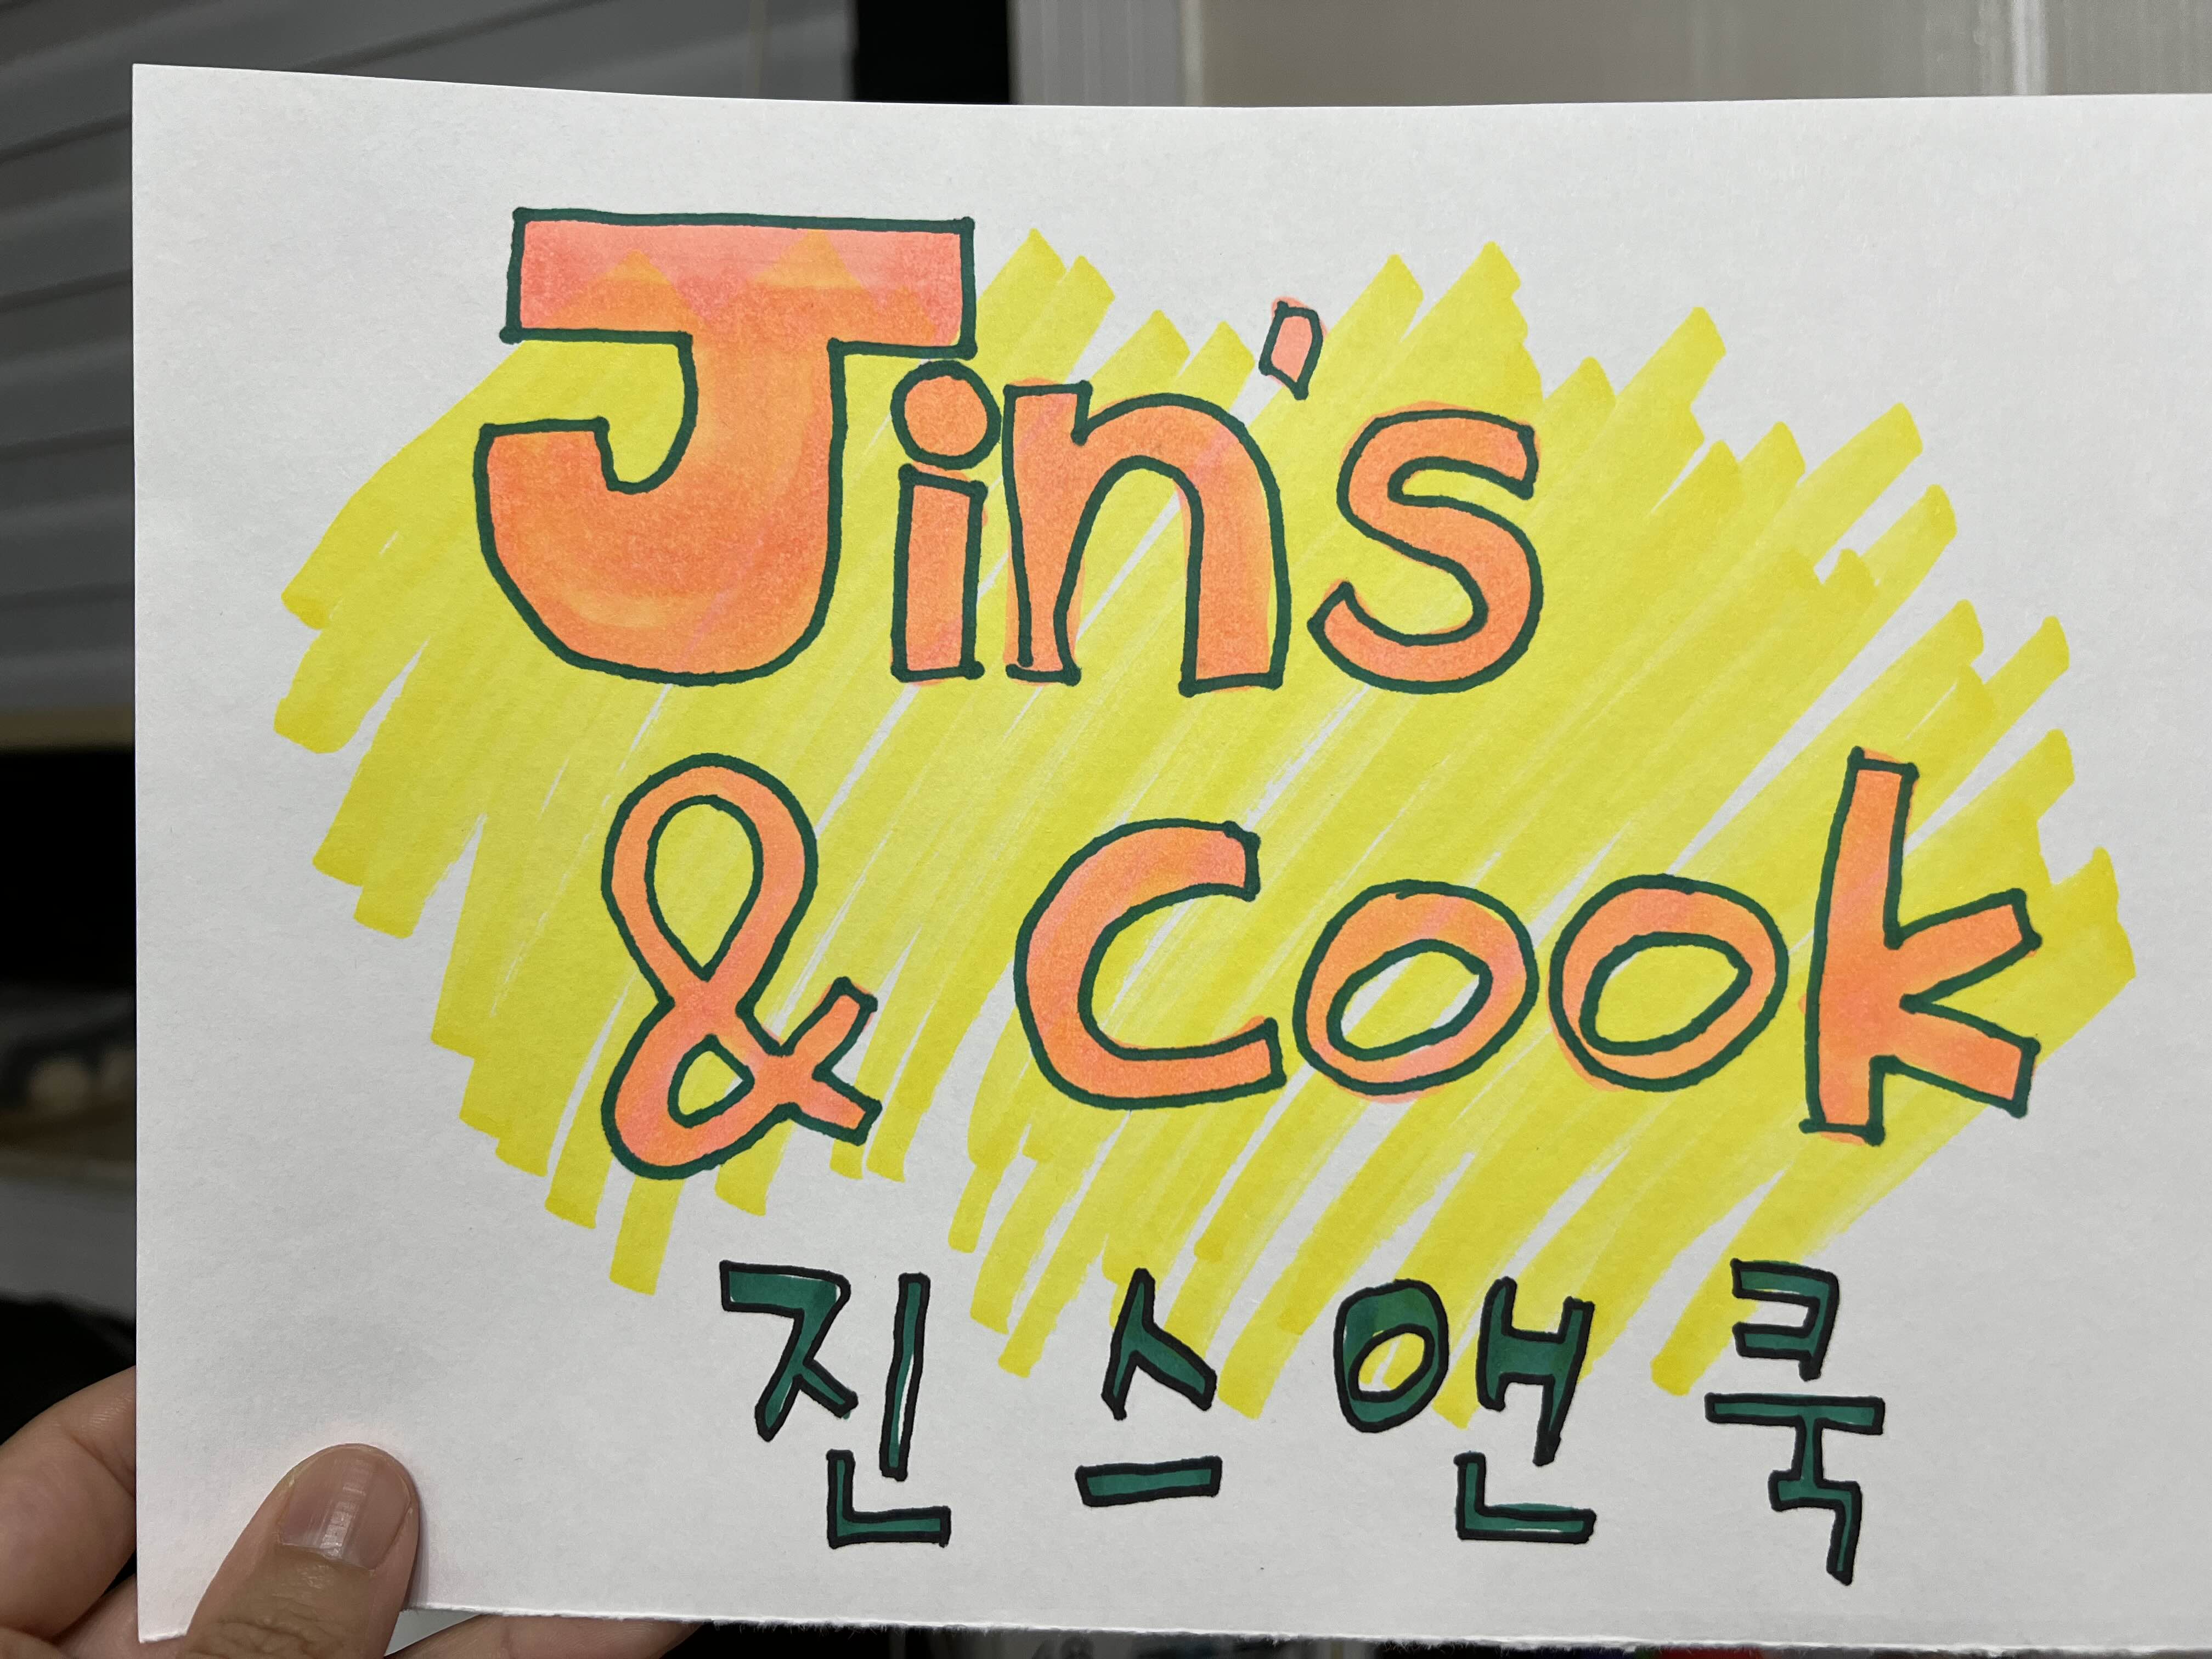 Jin's
& Cook
진스앤쿡